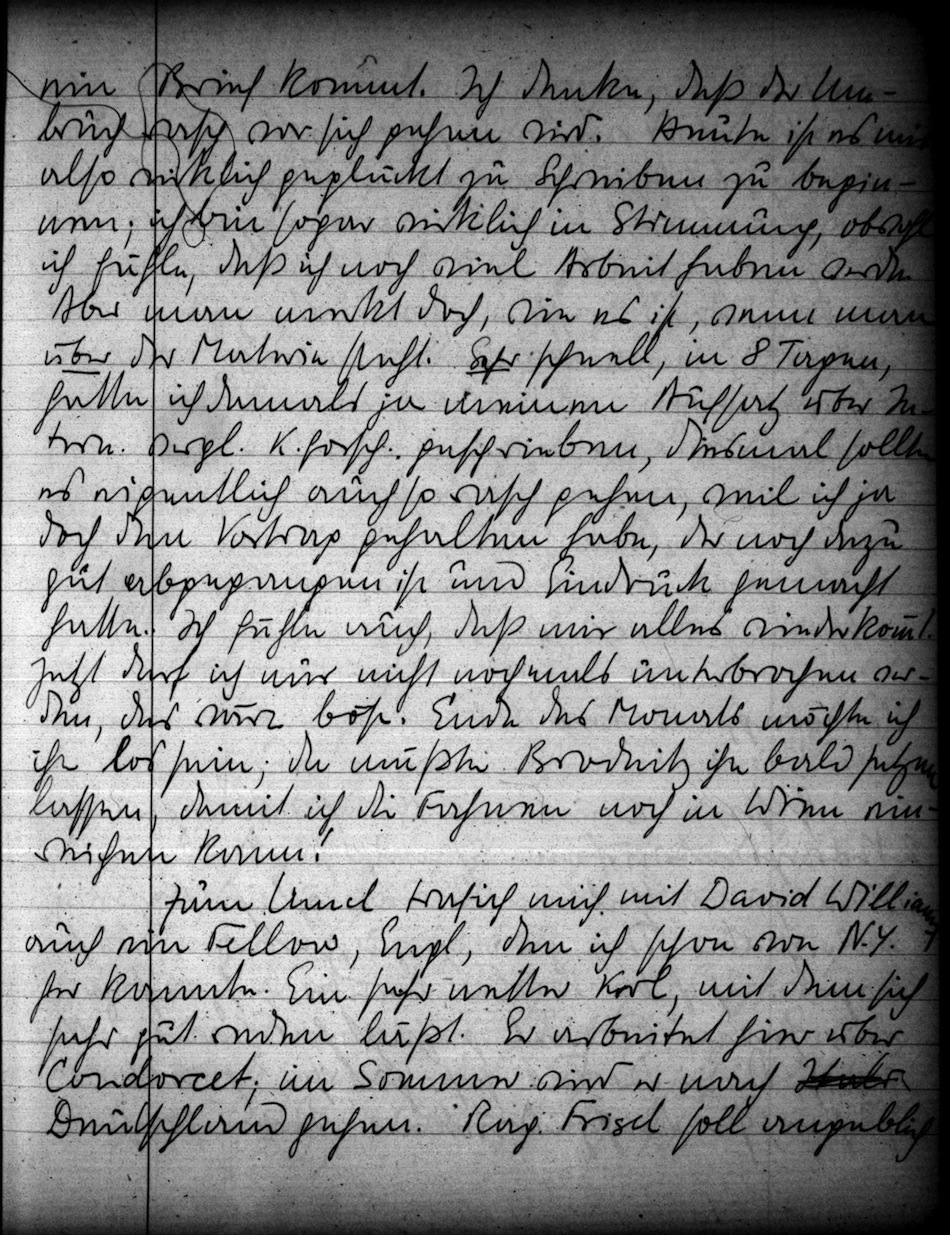 ein Brief kommt. Ich denke, daß der Um-
bruch rasch vor sich gehen wird. Heute ist es mir
also wirklich geglückt zu Schreiben zu begin-
nen; ich bin sogar wirklich in Stimmung, obwohl
ich fühle, daß ich noch viel Arbeit haben werde.
Aber man merkt doch, wie es ist, wenn man
über der Materie steht. Sehr schnell, in 8 Tagen,
hatte ich damals ja meinen Aufsatz über In-
tern. vergl. K.forsch. geschrieben, diesmal sollte
es eigentlich auch so rasch gehen, weil ich ja
doch den Vortrag gehalten habe, der noch dazu
gut abgegangen ist und Eindruck gemacht
hatte. Ich fühle auch, daß mir alles wiederkommt.
Jetzt darf ich nur nicht nochmals unterbrochen wer-
den, das wäre böse. Ende des Monats möchte ich
ihn los sein; da müßte Brodnitz ihn bald setzen
lassen, damit ich die Fahnen noch in Wien ein-
reichen kann!
Zum traf ich mich mit David Williams
auch ein Fellow, Engl, den ich schon von N.Y.
her kannte. Ein sehr netter Kerl, mit dem sich
sehr gut reden läßt. Er arbeitet hier über
Condorcet; im Sommer wird er nach
Deutschland gehen. Rag. Frisch soll angeblich